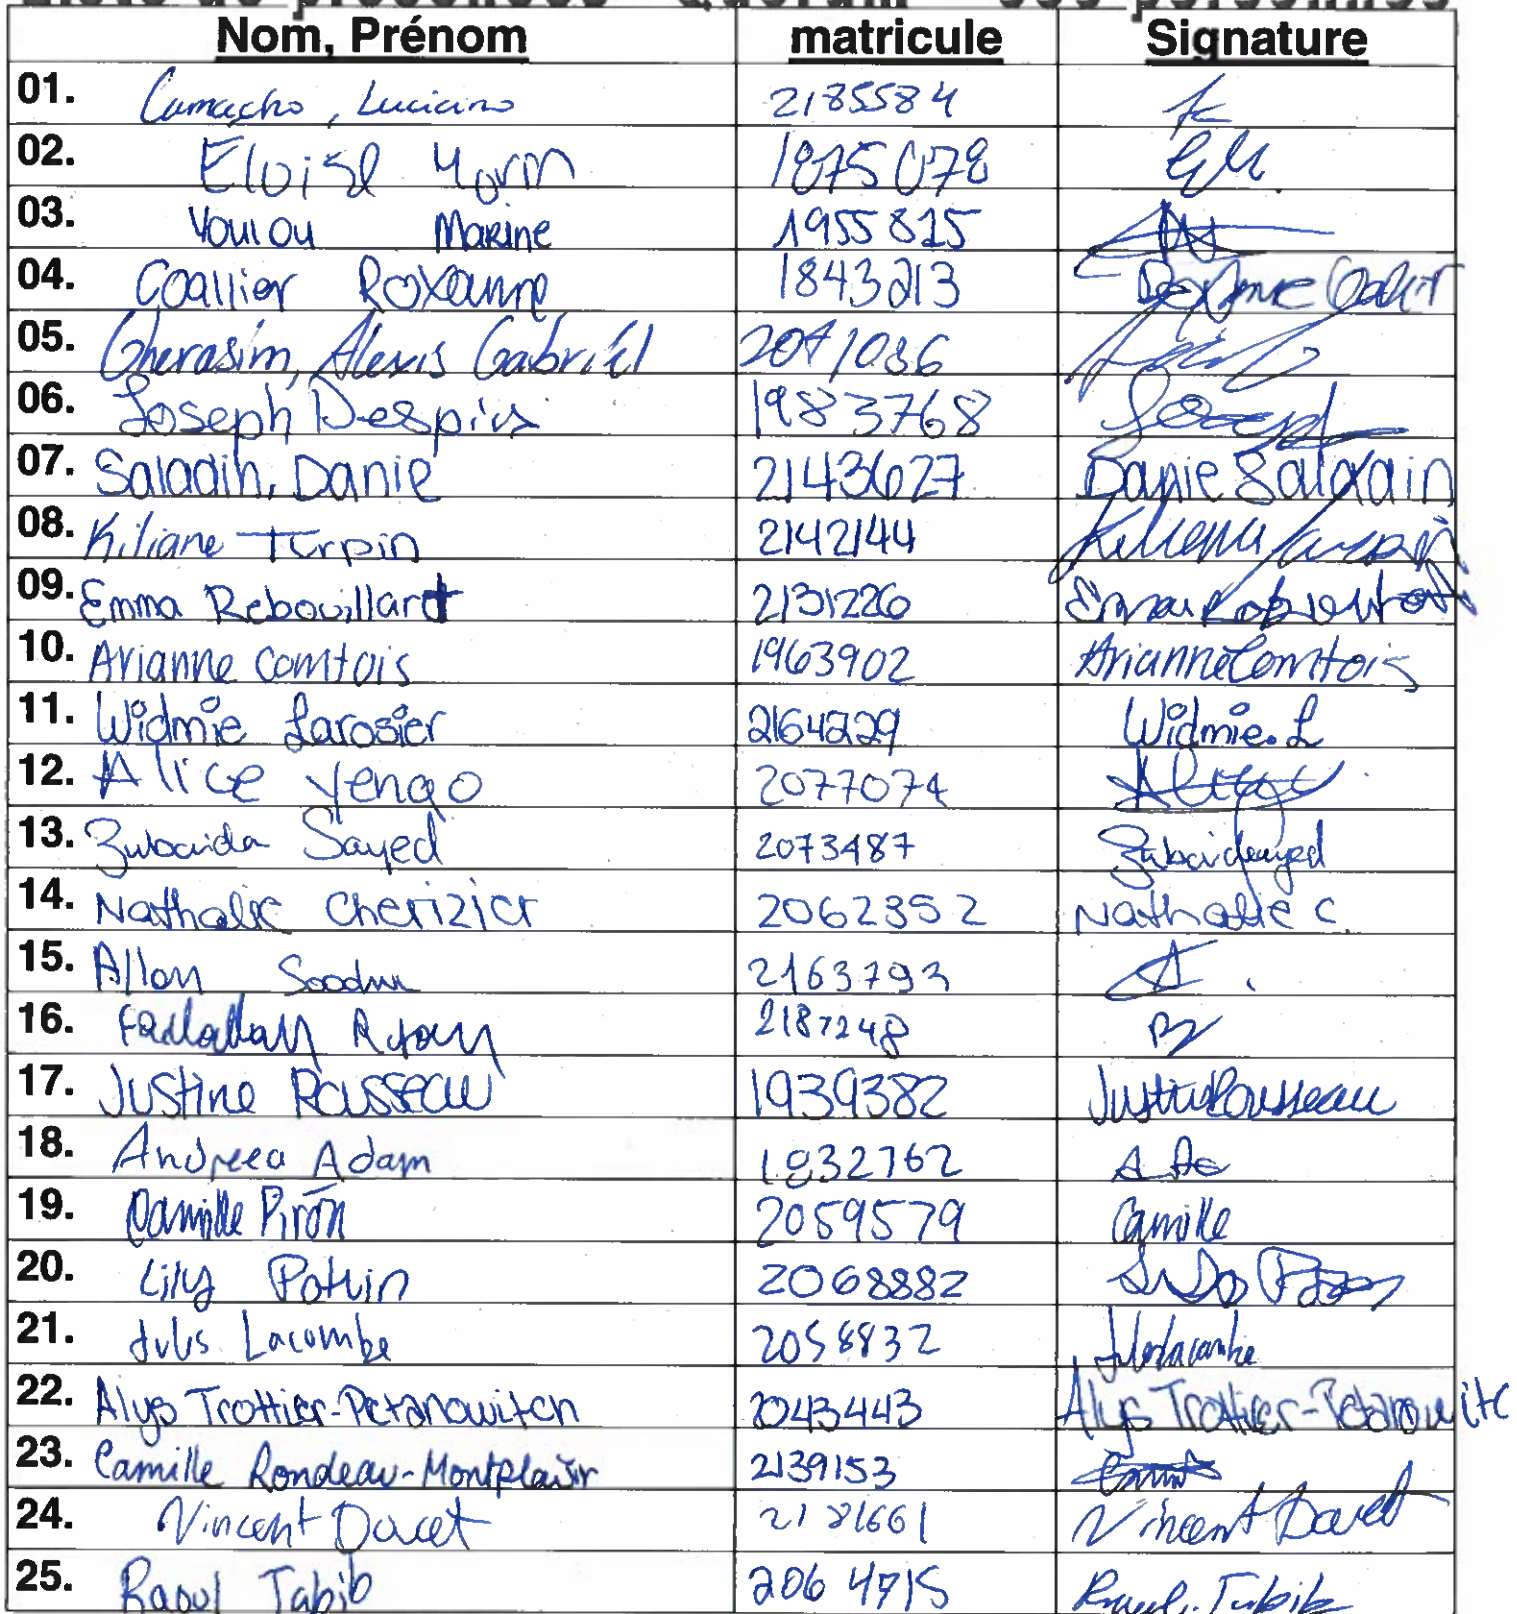 Nom, Prénom matricule Signature
01. Camacho, Luciano 2185584
02. Eloise Morin 1875078
03. Youlou Marine 1955815
04. Coallier Roxanne 1843213
05. Gherasim, Alexis Gabriel 2071036
06. Joseph Despins 1983768 Joseph
07. Saladin, Danie 2143627 Danie Saladain
08. Kiliane Turpin 2142144 Kiliane Turpin
09. Emma Rebouillart 2131226
10. Arianne Comtois 1963902 Arianne Comtois
11. Widmie Larosier 2164229 Widmie. L
12. Alice Yengo 2077074
13. Zubaida Sayed 2073487
14. Nathalie Cherizier 2062352 Nathalie C.
15. Allan 2163793
16. Fadlallah Rayan 2187248
17. Justine Rousseau 1939382 Justine Rousseau
18. Andreea Adam 1832762
19. Camille Piron 2059579 Camille
20. Lily Potvin 2068882
21. Jules Lacombe 2058832 Jules Lacombe
22. Alys Trottier-Petanowitch 2043443 Alys Trottier-Petanowitc
23. Camille Rondeau-Montplaisir 2139153
24. Vincent Davet 2181661 Vincent Davet
25. Raoul Tabib 2064715 Raoul Tabib